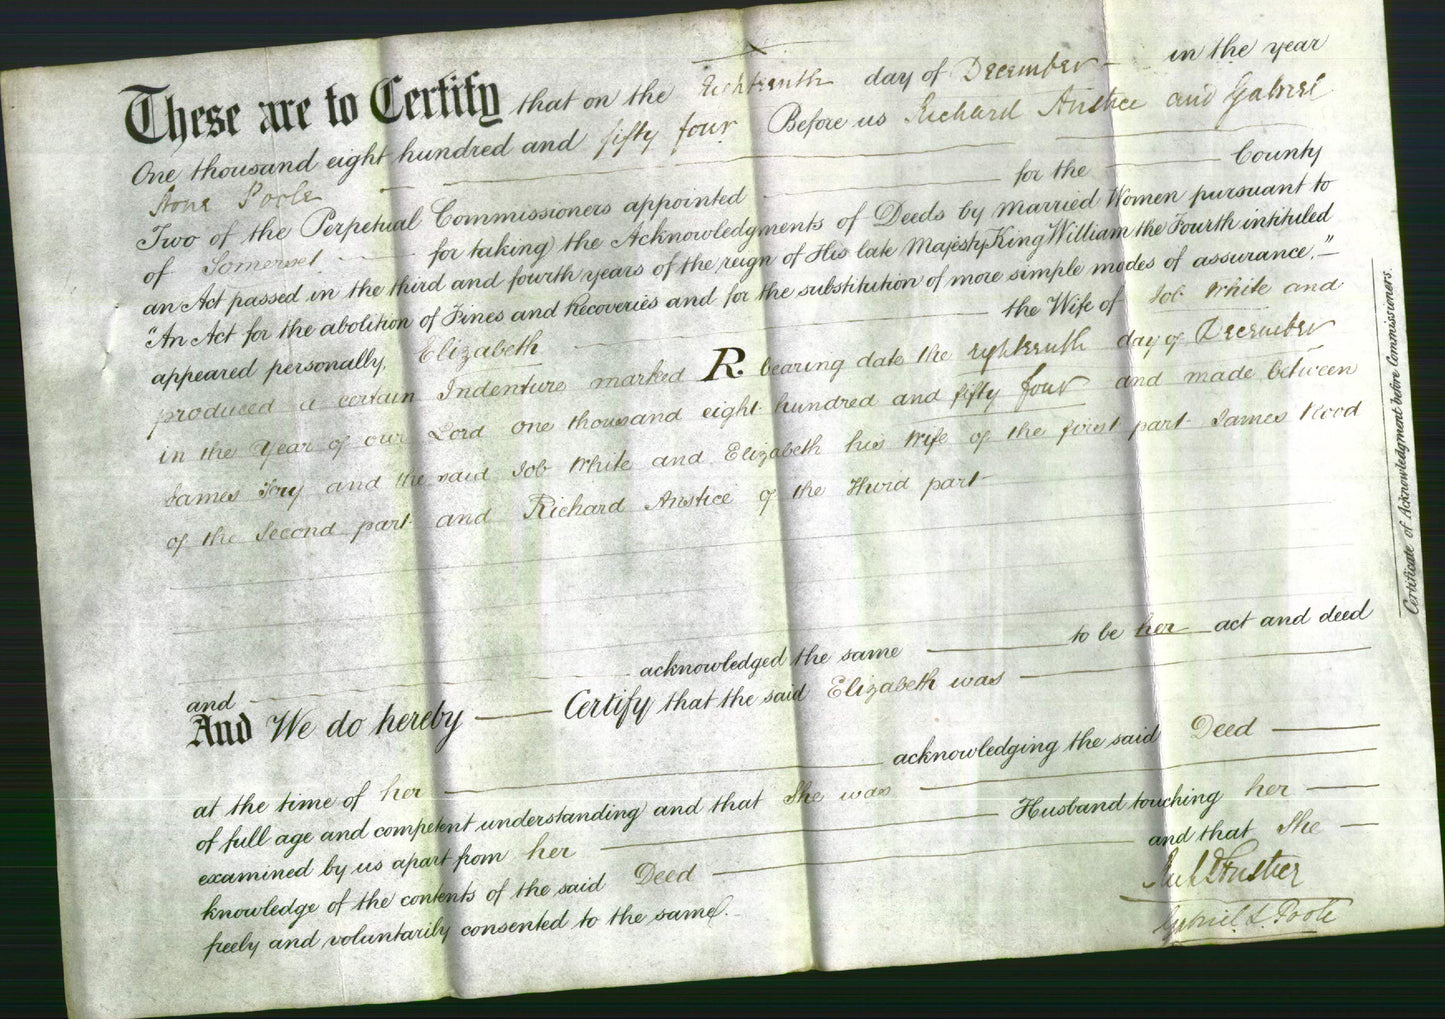 These are to Certify that on the Eighteenth day of December in the year
One thousand eight hundred and fifty four Before us Richard Anstice and Gabriel
Stone Poole
Two of the Perpetual Commissioners appointed for the County
of Somerset for taking the Acknowledgments of Deeds by Married Women pursuant to
an Act passed in the third and fourth years of the reign of His late Majesty King William the Fourth intituled
"An Act for the abolition of Fines and Recoveries and for the substitution of more simple modes of assurance,"
appeared personally, Elizabeth the Wife of Job White and
produced a certain Indenture marked R. bearing date the eighteenth day of December
in the Year of our Lord one thousand eight hundred and fifty four and made between
James and the said Job White and Elizabeth his Wife of the first part James Rood
of the Second part and Richard Anstice of the Third part
and acknowledged the same to be her act and deed
And We do hereby Certify that the said Elizabeth was
at the time of her acknowledging the said Deed
of full age and competent understanding and that She was
examined by us apart from her Husband touching her
knowledge of the contents of the said Deed and that She
freely and voluntarily consented to the same.
Richd Anstice
Gabriel S. Poole
Certificate of Acknowledgment before Commissioners.